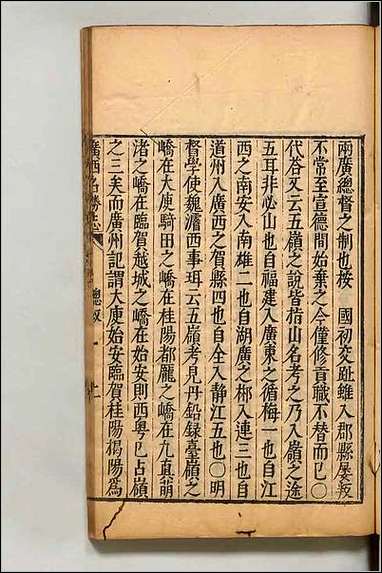 兩廣總督之制也按　國初交趾雖入郡縣屡叛
不常至宣德間始棄之今僅修貢職不替而已〇
代答又云五嶺之說皆指山名考之乃入嶺之途
五耳非必山也自福建入廣東之循梅一也自江
西之南安入南雄二也自湖廣之郴入連三也自
道州入廣西之賀縣四也自全入静江五也〇明
督學使魏濬西事珥云五嶺考見丹鉛録臺嶺之
嶠在大庾騎田之嶠在桂陽都龐之嶠在九真萌
渚之嶠在臨賀越城之嶠在始安則西粤已占嶺
之三矣而廣州記謂大庾始安臨賀桂陽揭陽為
廣西名勝志 總叙